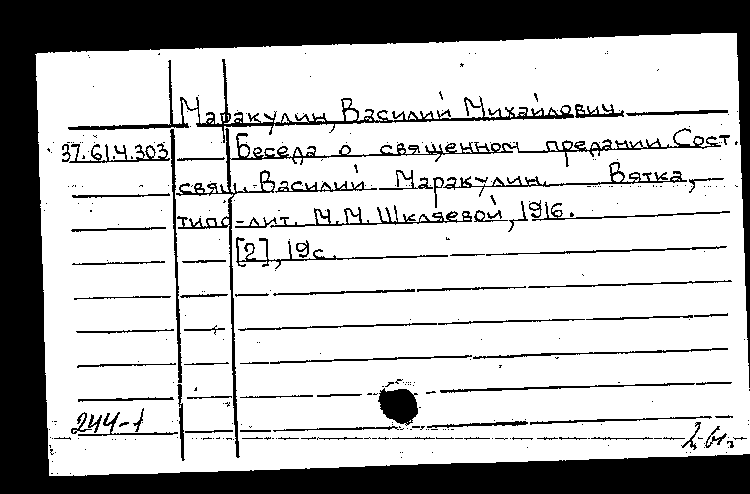 Маракулин, Василий Михайлович.
37.61.4.303 Беседа о священном предании. Сост.
свящ. Василий Маракулин. Вятка,
типо-лит. М.М. Шкляевой, 1916.
[2], 19с.
244-1